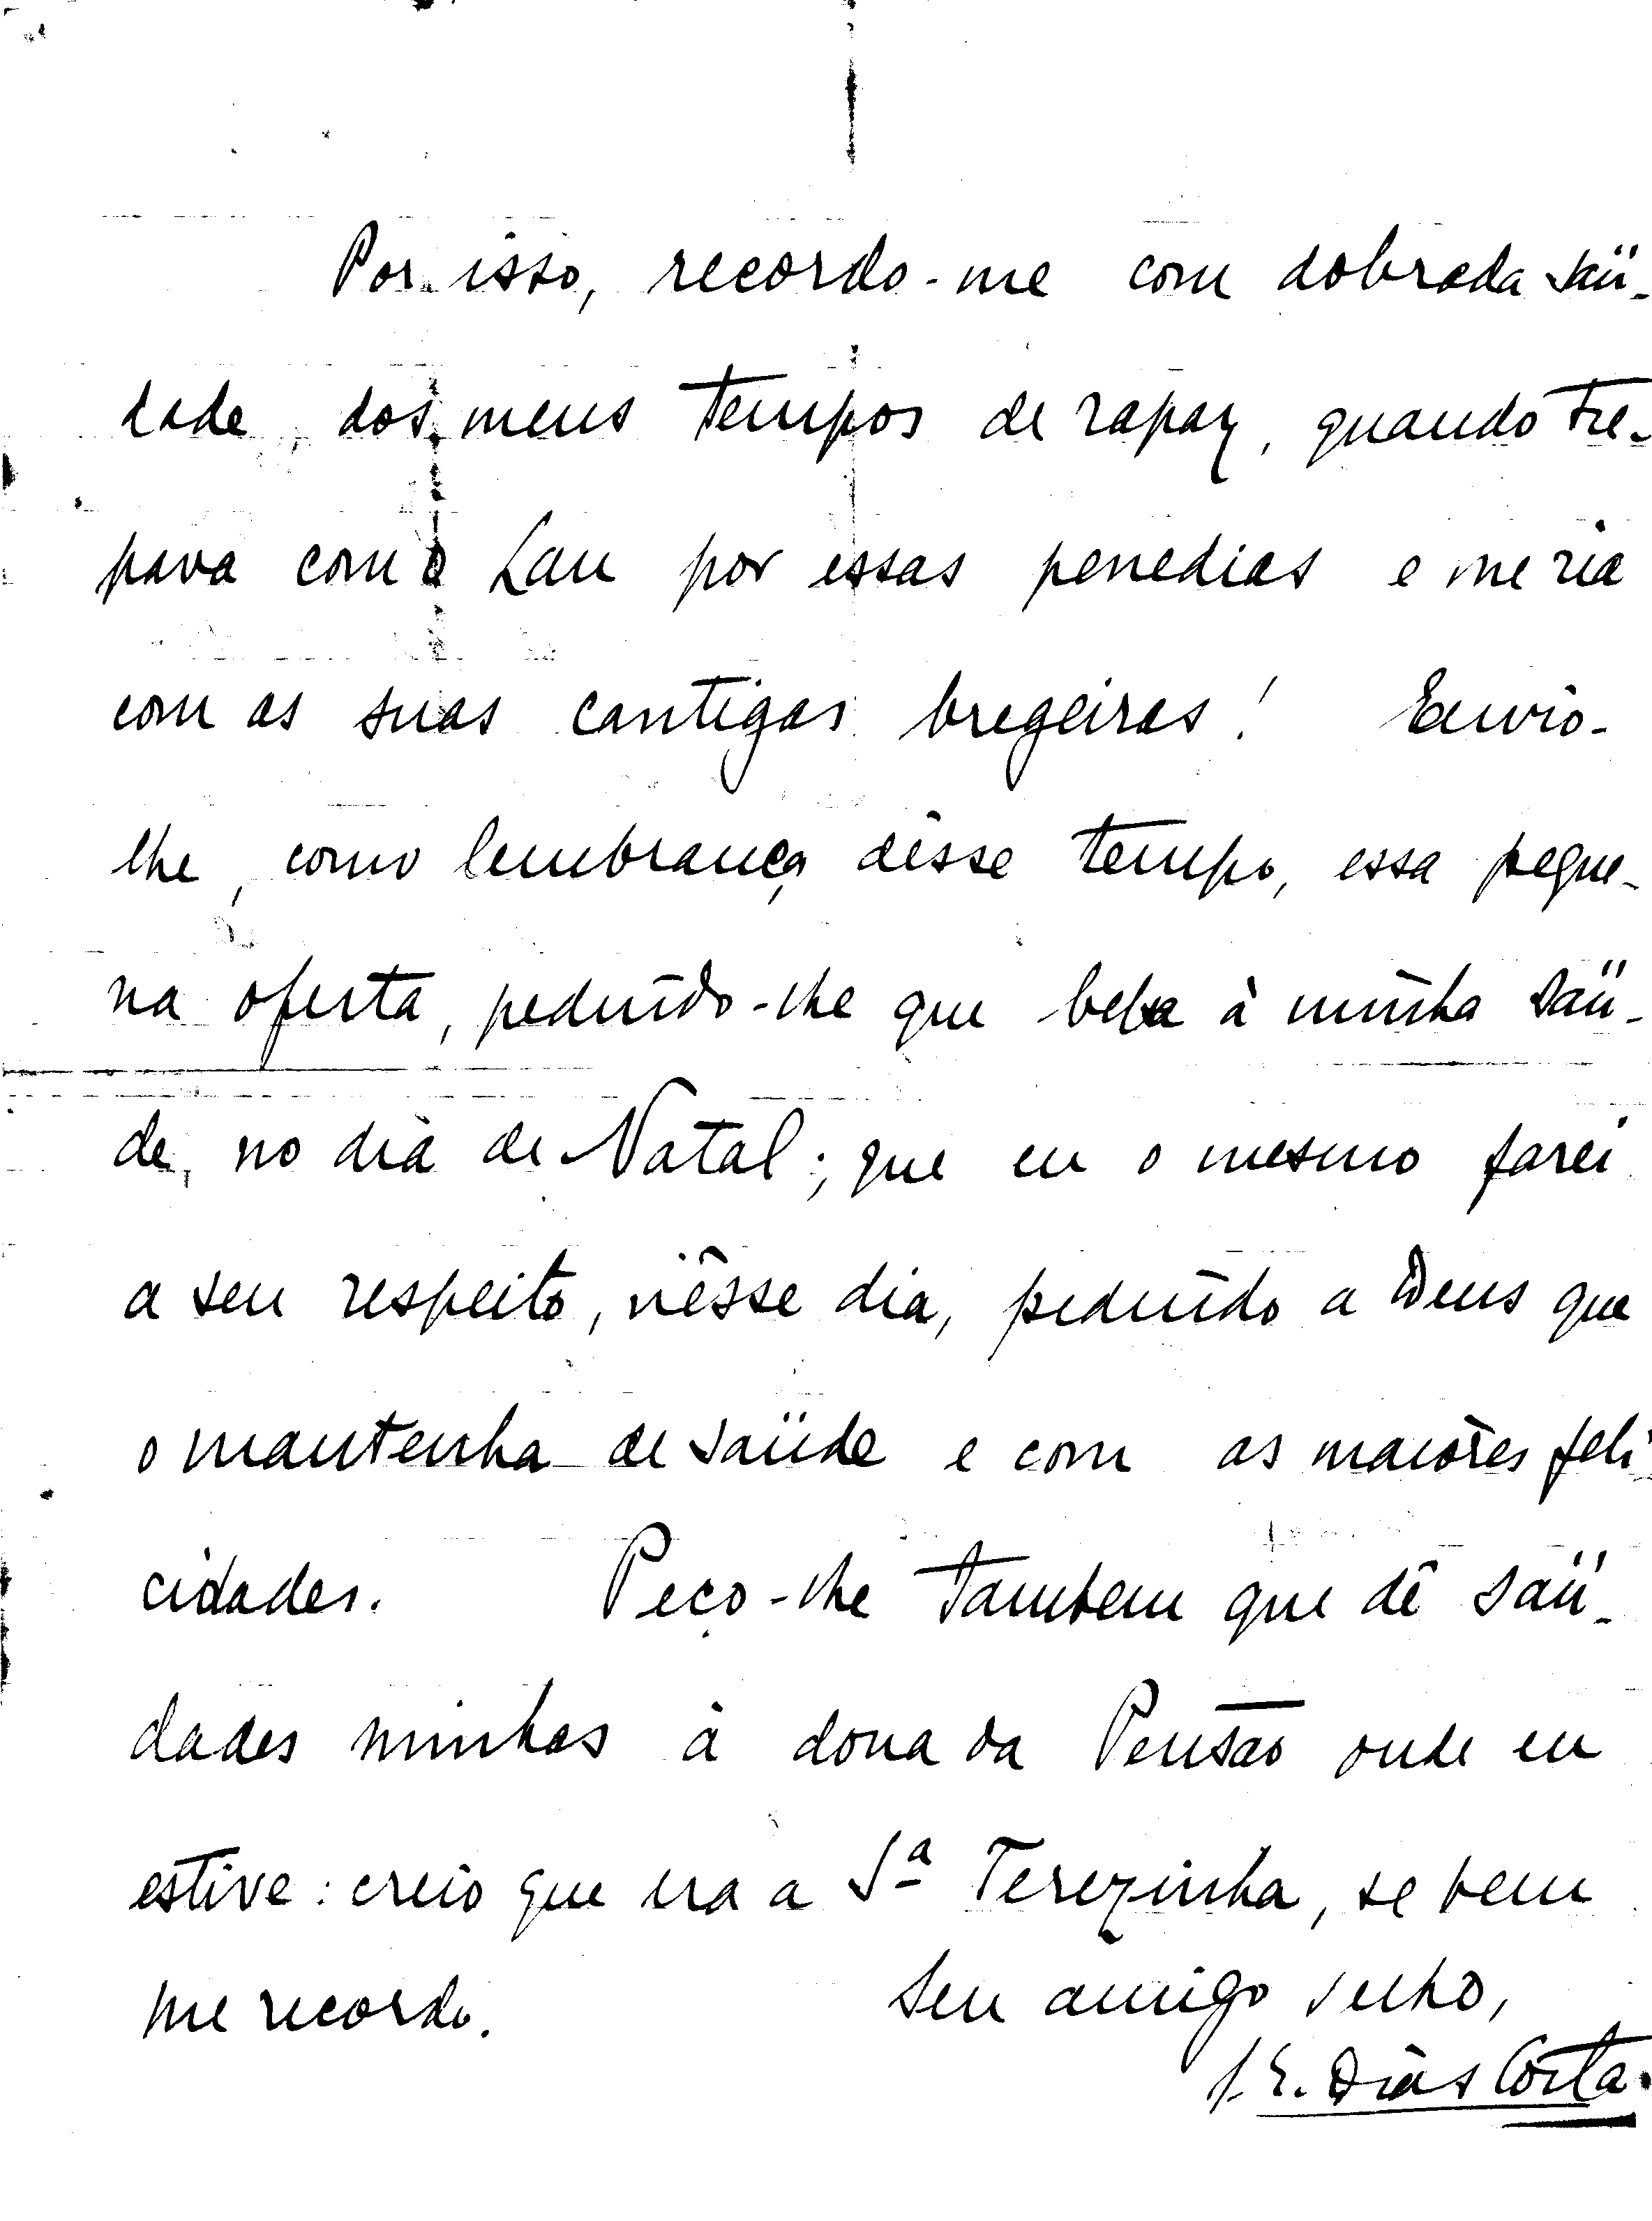 Por isso, recordo-me com dobrada saü-
dade, dos meus tempos de rapaz, quando tre-
pava com o Lau por essas penedias e me ria
com as suas cantigas bregeiras! Envio-
lhe, como lembrança dêsse tempo, essa peque-
na oferta, pedindo-lhe que beba à minha saü-
de, no dia de Natal; que eu o mesmo farei
a seu respeito, nêsse dia, pedindo a Deus que
o mantenha de saüde e com as maiores feli
cidades. Peço-lhe tambem que dê saü-
dades minhas à dona da Pensão onde eu
estive: creio que era a Sª Terezinha, se bem
me recordo. Seu amigo velho,
J. E. Dias Costa.